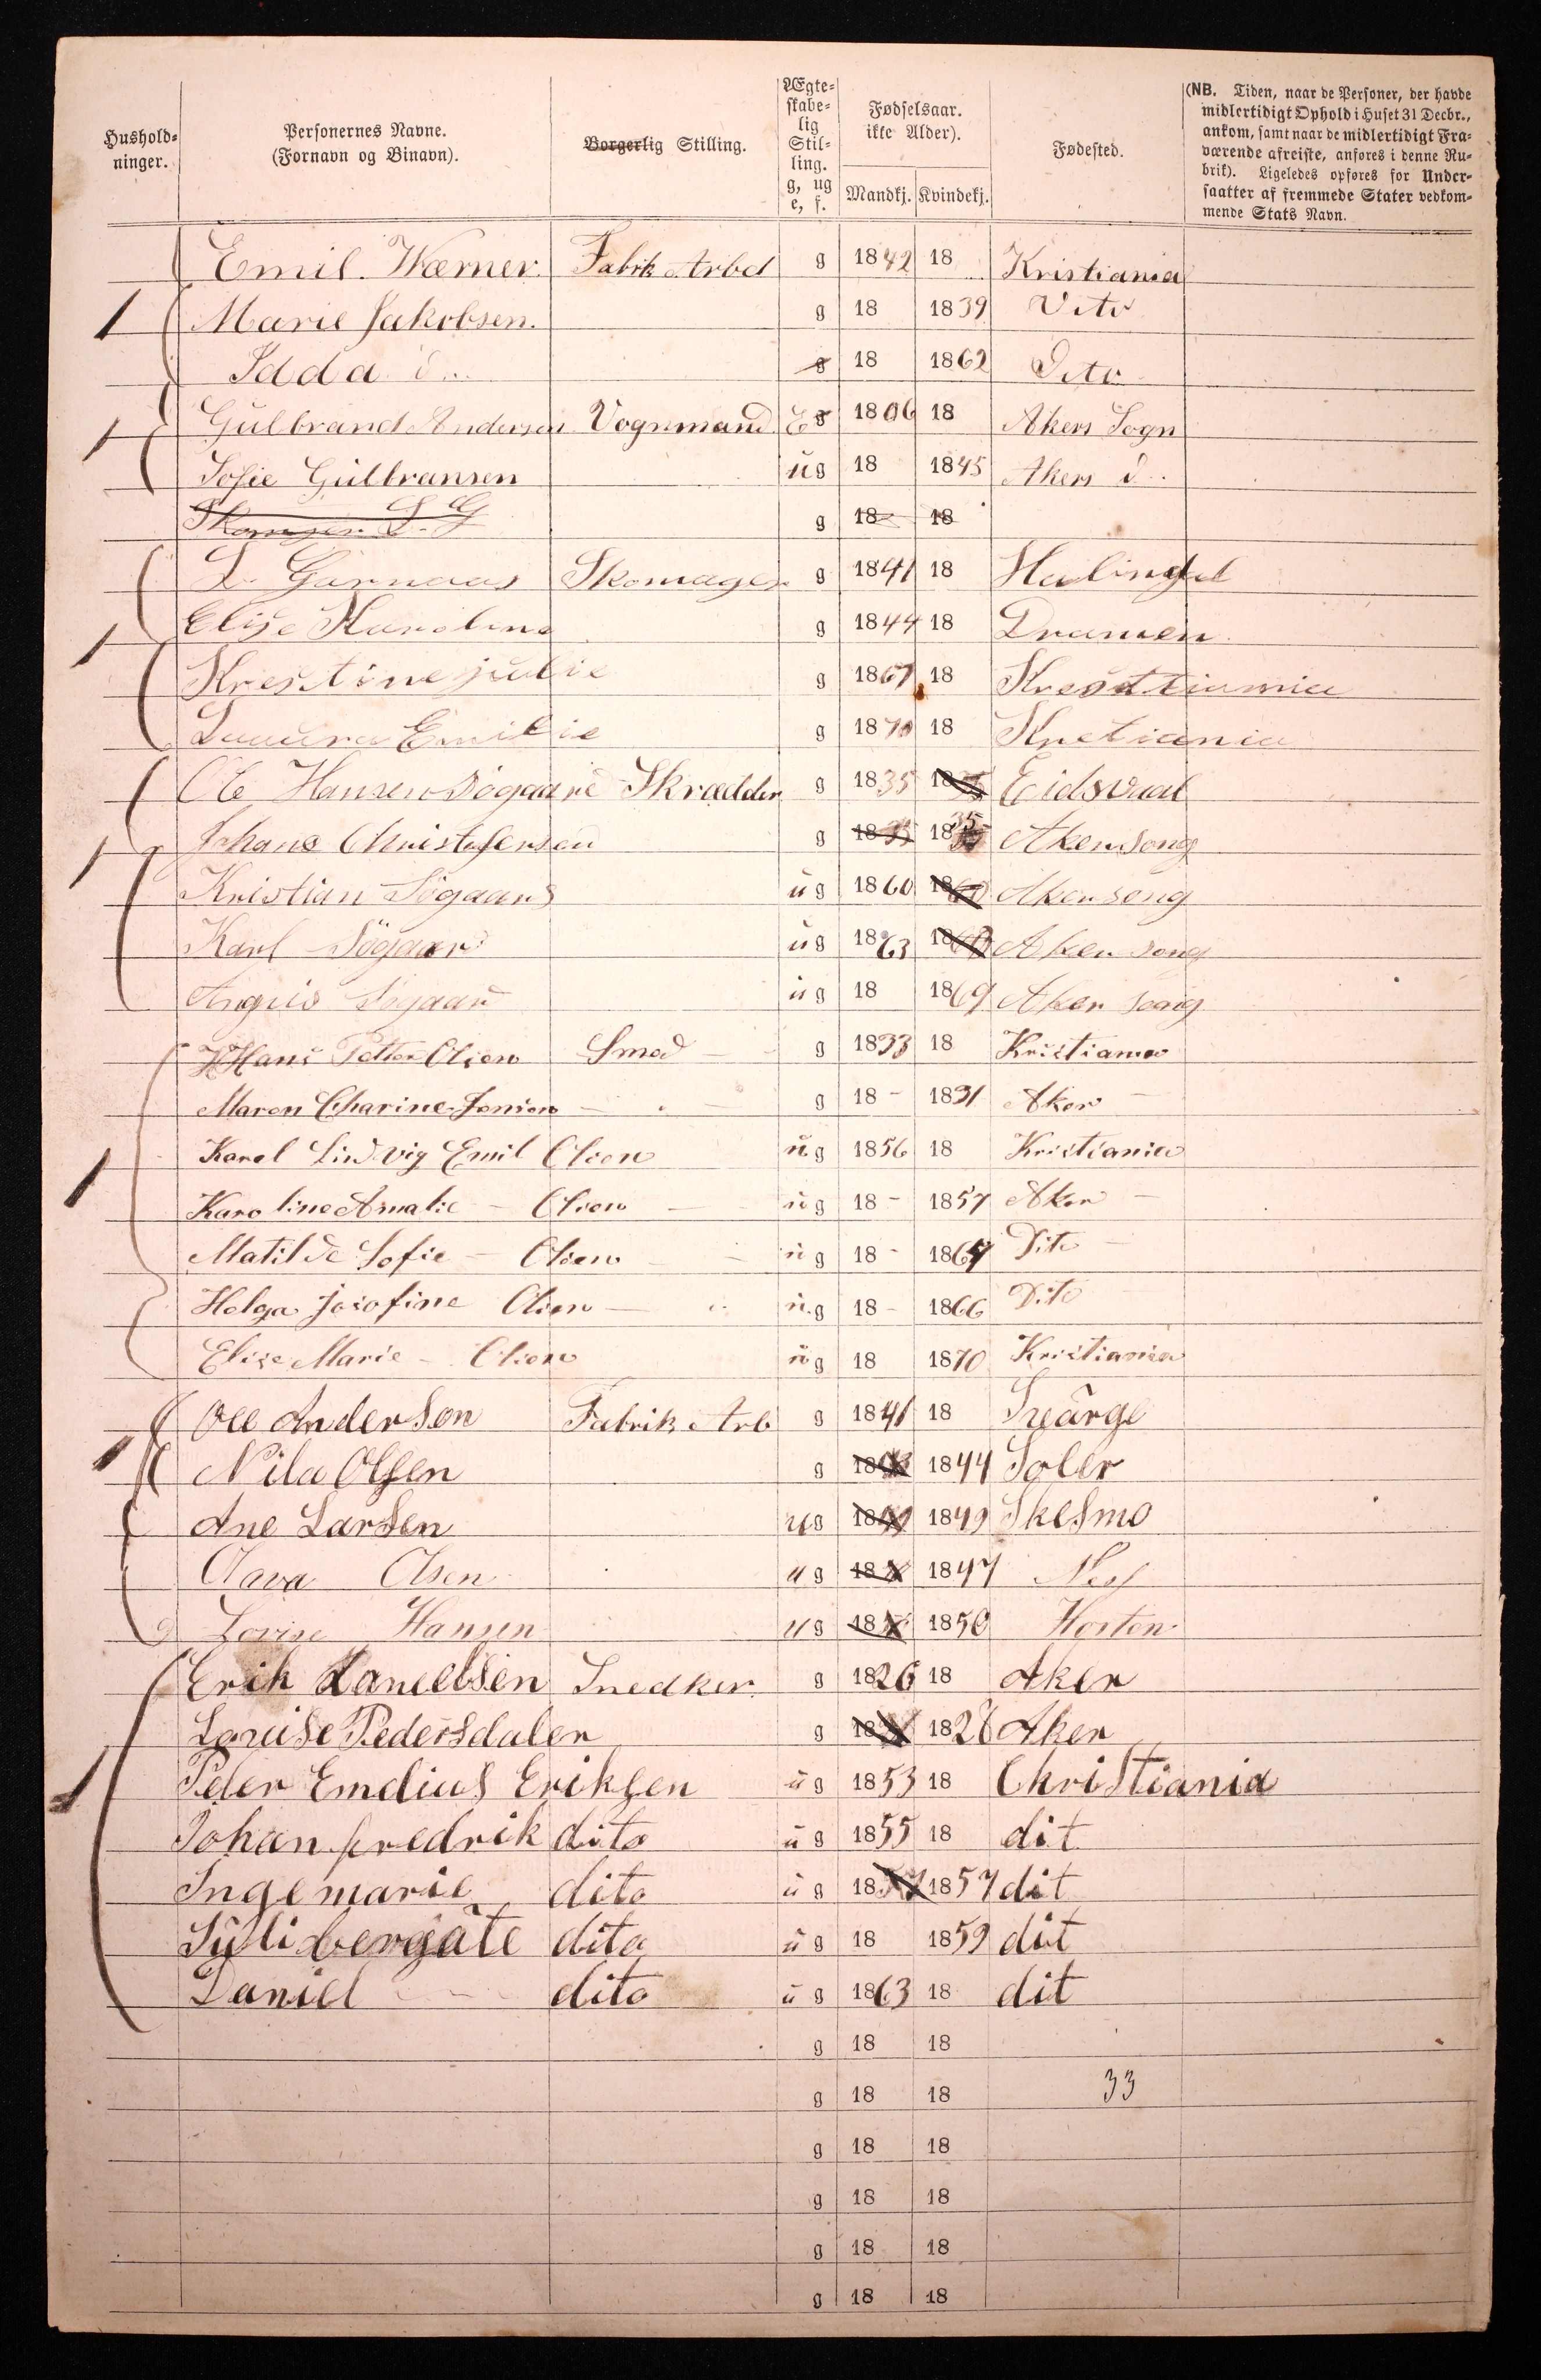 Hushold-
ninger.
Personernes Navne.
(Fornavn og Binavn).
Borgerlig Stilling.
Ægte-
skabe-
lig
Stil-
ling.
g, ug
e, f.
Fødselsaar.
ikke Alder).
Mandkj. Kvindekj.
Fødested.
(NB. Tiden, naar de Personer, der havde
midlertidigt Ophold i Huset 31 Decbr.,
ankom, samt naar de midlertidigt Fra-
værende afreiste, anføres i denne Ru-
brik). Ligeledes opføres for Under-
saatter af fremmede Stater vedkom-
mende Stats Navn.
Emil. Wærner Fabrik Arbd g 1842 18 Kristiania
1 Marie Jakobsen. g 18 1839 Dito
Idda d... g 18 1862 Dito
1 Gulbrand Andersen Vognmand E g 1806 18 Akers Sogn
Sofie Gulbransen ug 18 1845 Akers d..
L. G g 18 18
L. Garnaas Skomager g 1841 18
1 Elise Karoline g 1844 18 Dramen
Krestine julie g 1867 18 Kresttiania
Lauura Emilie g 1870 18 Kretiania
Ole Hansen Søgaard Skrædder g 1835 18 Eidsvaal
1 Johane Christofersen g 18 1835 Akersong
Kristian Søgaard ug 1860 18 Akersong
Karl Søgaard ug 1863 18 Aker song
Søgaard ug 18 1869 Aker song
Hans Petter Olsen Smed g 1833 18 Kristiania
Maren Charine Jensen g 18 - 1831 Aker
Karel Ludvig Emil Olsen ug 1856 18 Kristiania
1 Karoline Amalie - Olsen ug 18 - 1857 Aker
Matilde Sofie - Olsen ug 18 - 1864 Dito
Helga Josefine Olsen ug 18 - 1866 Dito
Elise Marie - Olsen ug 18 1870 Kristiania
Ole Anderson Fabrik Arb g 1841 18
1 Nila Olsen g 18 1844 Soler
Ane Larsen ug 18 1849 Skesmo
Olava Olsen ug 18 1847 Nes
Lovise Hansen ug 18 1850 Horten
Erik Danielsen Snedker. g 1826 18 Aker
Louise Pedersdaler g 18 1828 Aker
1 Peder Emdius Eriksen ug 1853 18 Christiania
Johan fredrik dito ug 1855 18 dit
Inge marie dito ug 18 1857 dit
dito ug 18 1859 dit
Daniel dito ug 1863 18 dit
g 18 18
g 18 18 33
g 18 18
g 18 18
g 18 18
g 18 18